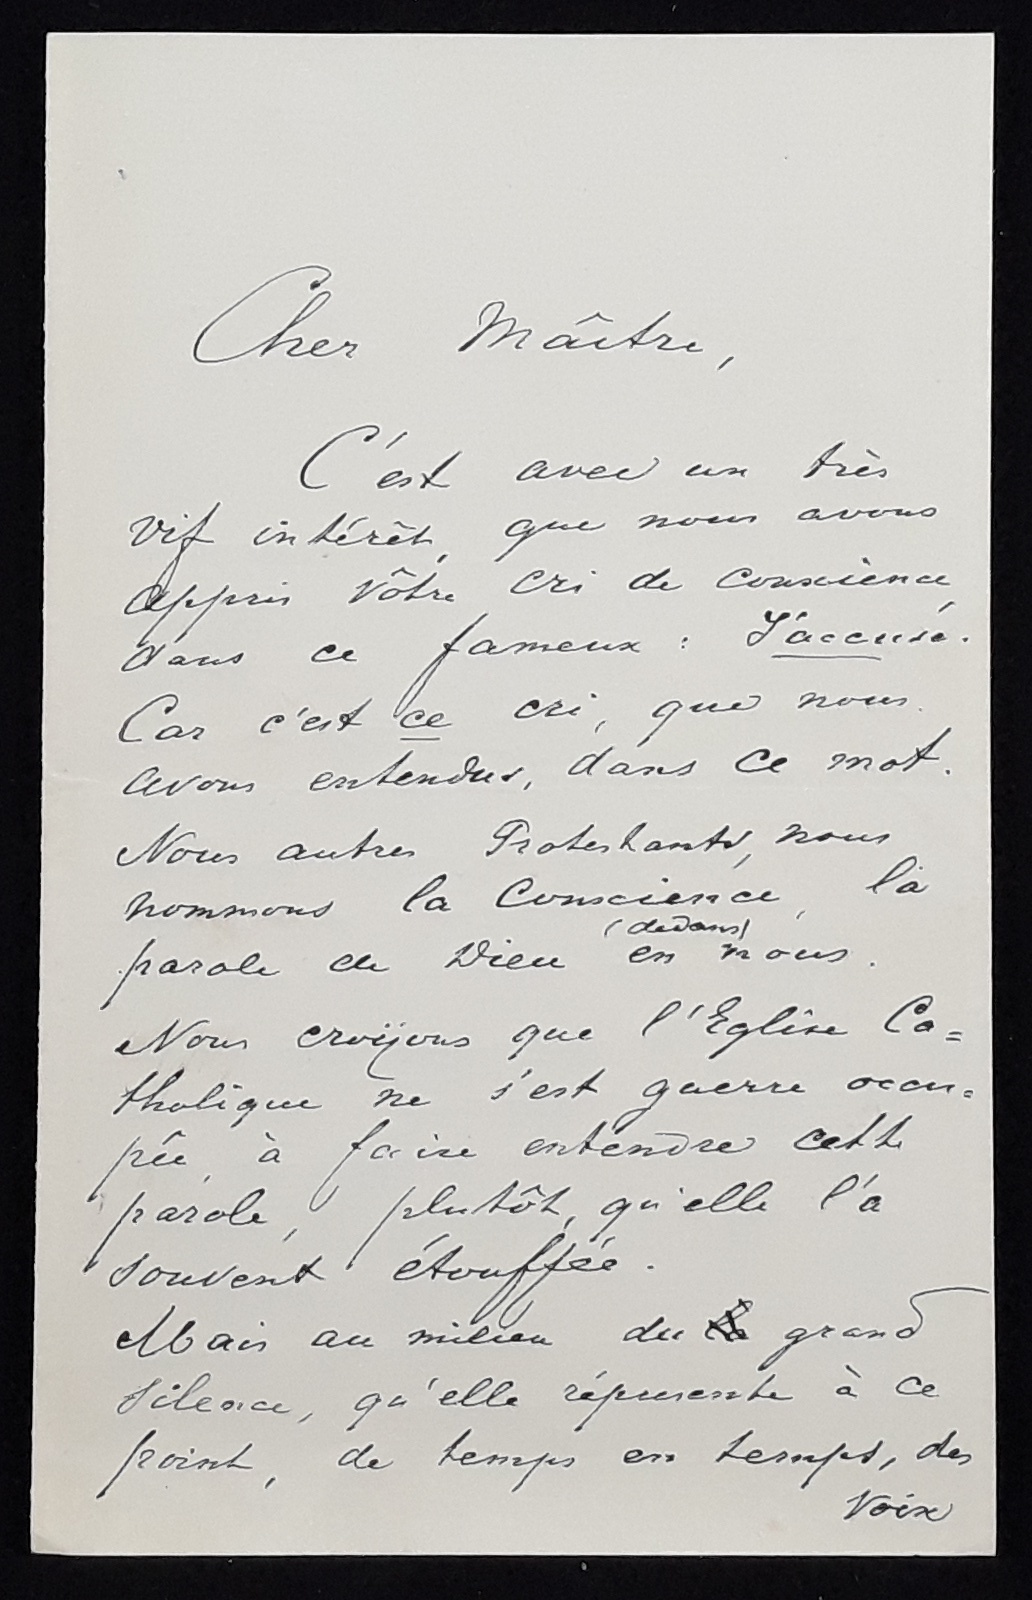 Cher Maître,
C'est avec un très
vif intérêt, que nous avons
appris vôtre cri de conscience,
dans ce fameux : J'accuse.
Car c'est ce cri, que nous
avons entendus, dans ce mot.
Nous autres Protestants, nous
nommons la Conscience, la
(dedans)
parole de Dieu en nous.
Nous croijons que l'Eglise Ca=
tholique ne s'est guerre occu=
pée, à faire entendre cette
parole, plutôt, qu'elle l'a
souvent étouffée.
Mais au milieu du grand
silence, qu'elle répresente à ce
point, de temps en temps, des
voix